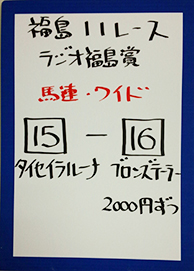 福島11レース
ラジオ福島賞
馬連・ワイド
15 — 16
タイセイラルーナ ブロンズテーラー
2000円ずつ